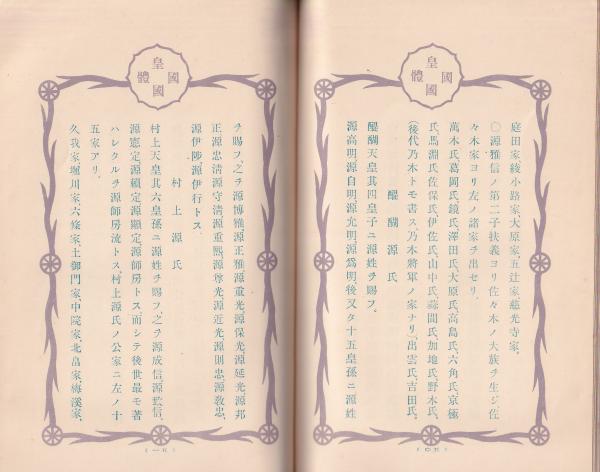 皇國國體
庭田家、綾小路家、大原家、五辻家、慈光寺家、
〇源雅信ノ第二子扶義ヨリ佐々木ノ大族ヲ生ジ佐
々木家ヨリ左ノ諸家ヲ出セリ。
萬木氏、葛岡氏、鏡氏、澤田氏、大原氏、高島氏、六角氏、京極
氏、馬淵氏、佐保氏、伊佐氏、山中氏、蒜間氏、加地氏、野木氏、
(後代乃木トモ書ス、乃木將軍ノ家ナリ、)出雲氏、吉田氏。
醍醐源氏
醍醐天皇其四皇子ニ源姓ヲ賜フ。
源高明、源自明、源允明、源爲明、後又タ十五皇孫ニ源姓
(五〇)
皇國國體
ヲ賜フ、之ヲ源博雅、源正雅、源重光、源保光、源延光、源邦
正、源忠淸、源守淸、源重熙、源尊光、源近光、源則忠、源敎忠、
源伊陟、源伊行トス。
村上源氏
村上天皇其六皇孫ニ源姓ヲ賜フ、之ヲ源成信、源
源憲定、源賴定、源顯定、源師房トス、而シテ後世最モ著
ハレタルヲ源師房流トス、村上源氏ノ公家ニ左ノ十
五家アリ。
久我家、堀川家、六條家、土御門家、中院家、北畠家、梅溪家、
(五一)